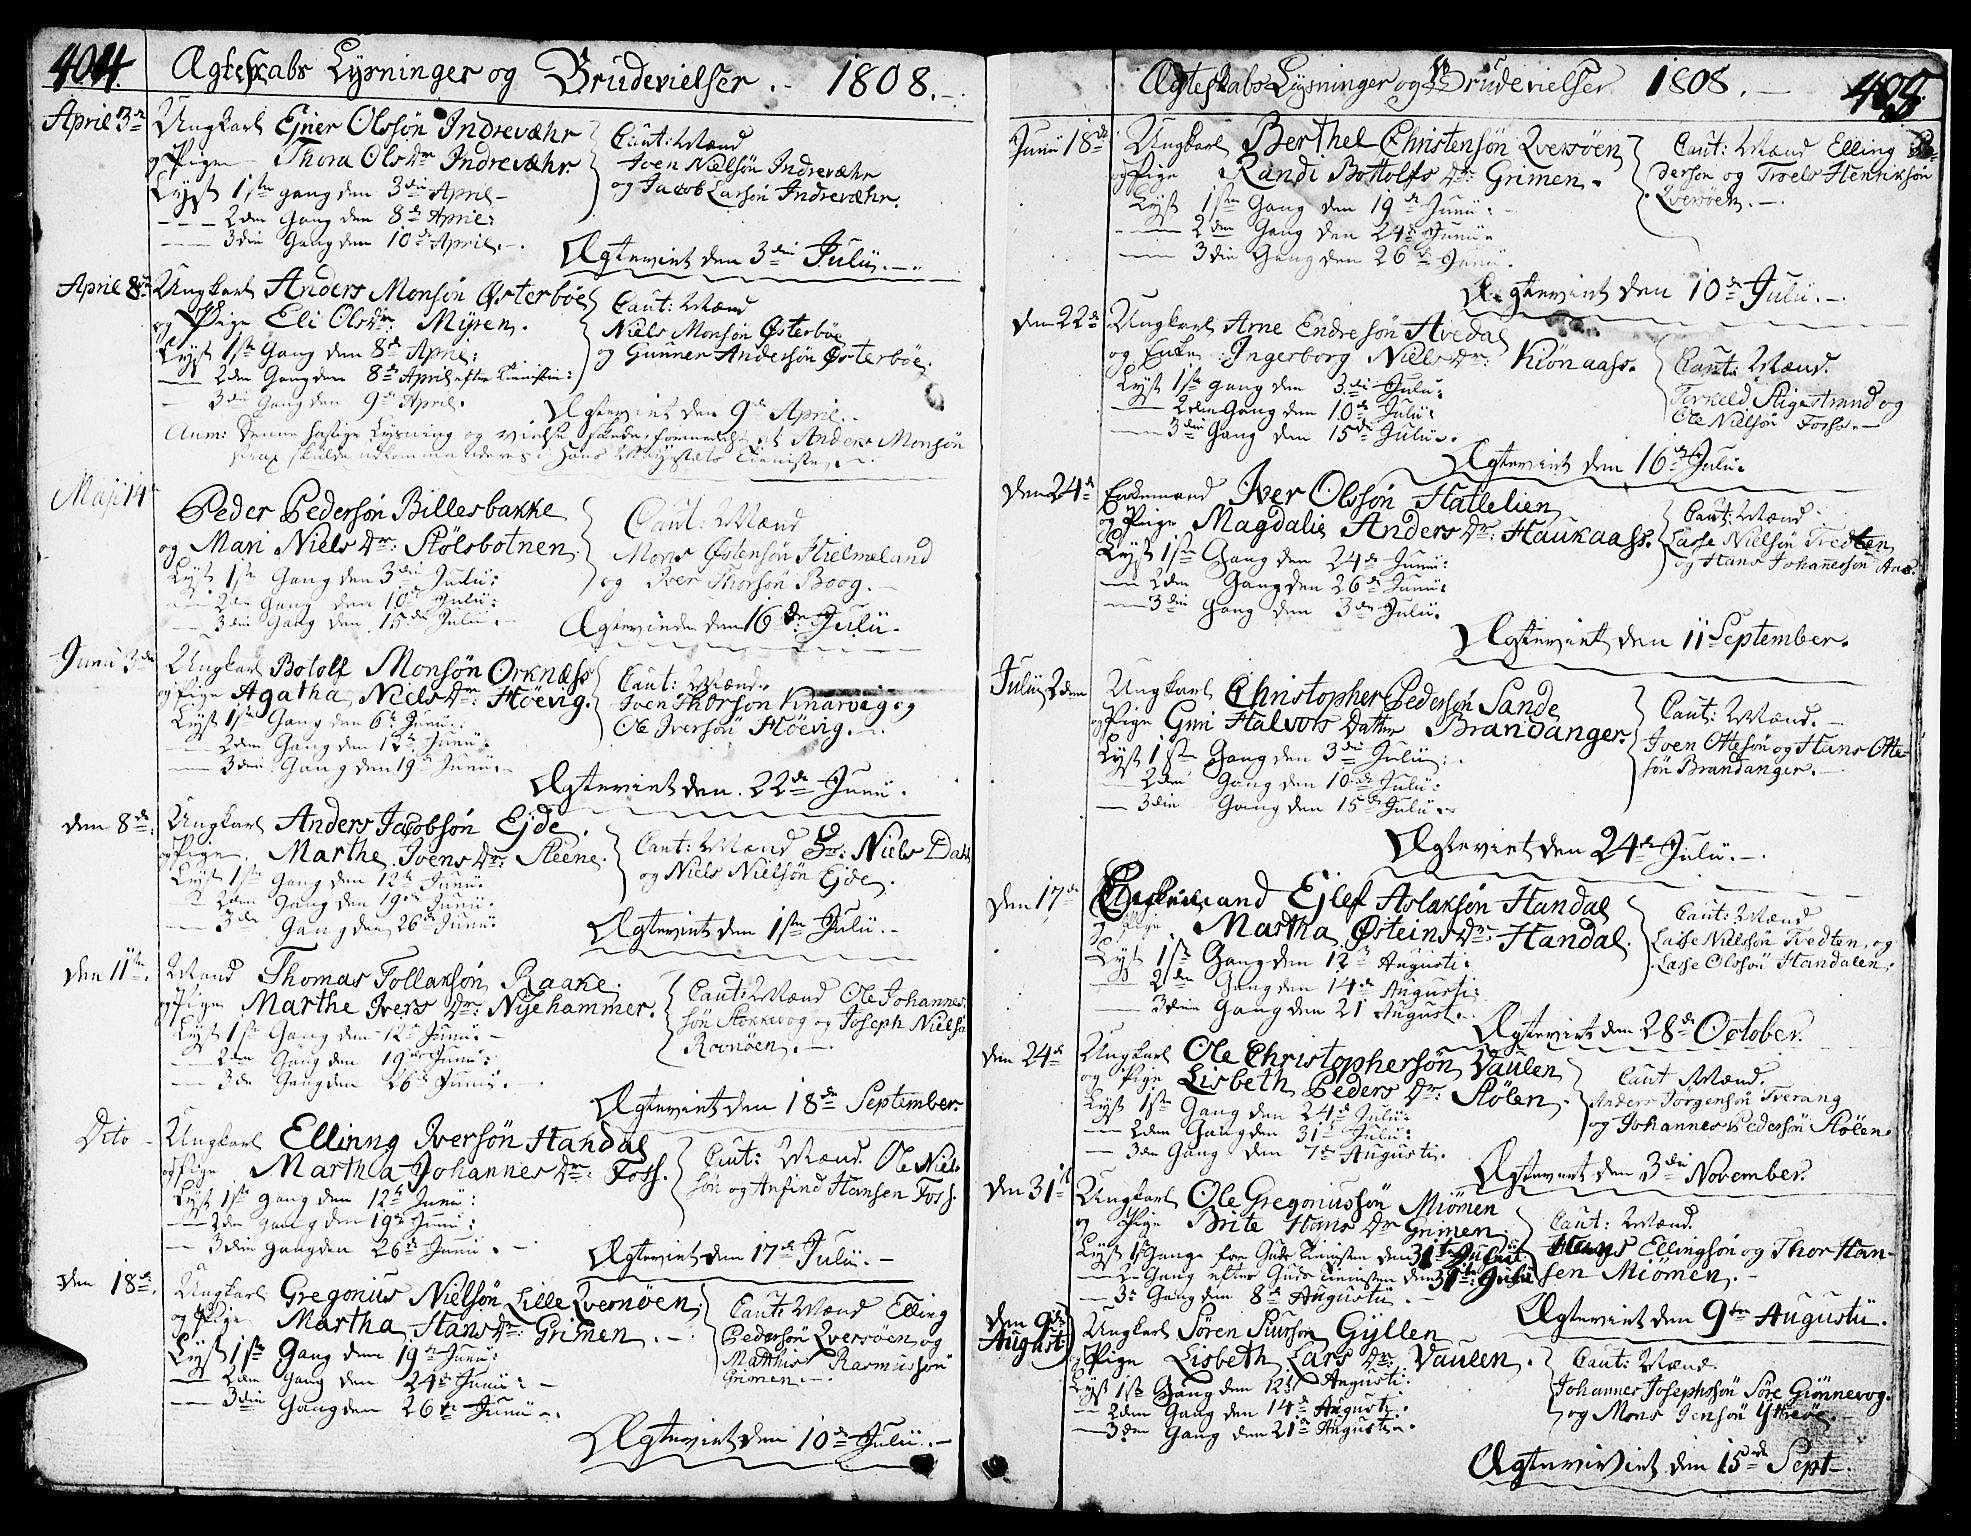 404. Ægteskabs Lysninger og Brudevielser. - 1808. -
April 3de Ungkarl Ejner Olssøn Indrevæhr
og Pige Thora Ols Dr Indrevæhr.
Caut: Mænd
Iven Nielsøn Indrevæhr
og Jacob Larsøn Indrevæhr.
Lyst 1ste gang den 3die April -
- 2den Gang den 8de April:
- 3die Gang den 10de April. -
Ægteviet den 3die Julii. -
April 8de Ungkarl Anders Monsøn Østerbøe
og Pige Eli Ols Dr: Myren.
Caut: Mænd
Niels Monsøn Østerbøe
og Gunner Andersøn Østerbøe.
Lyst 1ste Gang den 8de April:
- 2den Gang den 8de April efter Tienesten:
- 3die Gang den 9de April.
Ægteviet den 9de April. -
Anm: Denne hastige Lysning og vielse skede, formedelst at Anders Monsøn
strax skulde udkommanderes i Hans Majestæts Tieneste. -
Maji 14
Peder Pedersøn Billesbakke
og Mari Niels Dr: Stølsbotnen.
Caut: Mænd
Mons Østensøn Hielmeland
og Iver Thorsøn Boog. -
Lyst 1ste Gang den 3die Julii:
- 2den Gang den 10de Julii:
- 3die Gang den 15de Julii. -
Ægteviede den 16de Julii.
Junii 3die Ungkarl Botolf Monsøn Orknæss
og Pige Agatha Niels Dr: Høevig.
Caut: Mænd.
Iven Thorsøn Knarvig og
Ole Iversøn Høevig. -
Lyst 1ste Gang den 6te Junii:
- 2den Gang den 12te Junii:
- 3die Gang den 19de Junii. -
Ægteviet den 22de Junii.
den 8de. Ungkarl Anders Jacobsøn Ejde.
og Pige. Marthe Ivens Dr: Steene.
Caut: Mænd Sr: Niels Dahl
og Niels Nielsøn Ejde.
Lyst 1ste Gang den 12te Junii.
- 2den Gang den 19de Junii.
- 3de Gang den 26de Junii.
Ægteviet den 1ste Julii. -
den 11te. Mand Thomas Tollaksøn Raake.
og Pige Marthe Ivers Dr: Nyehammer.
Caut: Mænd Ole Johannes-
søn Stokkevog og Joseph Nielsø
Rovnøen. -
Lyst 1ste Gang den 12te Junii. -
- 2den Gang den 19de Junii:
- 3de Gang den 26de Junii. -
Ægteviet den 18de September.
Dito - Ungkarl Ellinng Iversøn Handal
og Pige Martha Johannes Dr: Foss.
Caut: Mænd. Ole Niel-
søn og Anfind Hansen Foss.
Lyst 1ste Gang den 12te Junii:
- 2den Gang den 19de Junii:
- 3die gang den 26de Junii. -
Ægteviet den 17de Julii. -
den 18de. Ungkarl Gregonius Nielsøn Lille Qvernøen
og Pige Martha Hans Dr: Grimen. -
Caut: Mænd Elling
Pedersøn Qversøen og
Matthis Rasmussøn
Grimen. -
Lyst 1ste Gang den 19de Junii:
- 2den Gang den 24de Junii: -
- 3die Gang den 26de Junii -.
Ægteviet den 10de Julii. -
Ægteskabs Lysninger og Brudevielser 1808. - 405.
Junii 18de Ungkarl Berthel Christensøn Qversøen
og Pige Randi Bottolfs Dr: Grimen.
Caut: Mænd Elling Pe-
dersøn og Troels Henriksøn
Qversøen. -
Lyst 1ste Gang den 19de Junii:
- 2den Gang den 24de Junii.
- 3die Gang den 26de Junii.
Ægteviet den 10de Julii. -
den 22de Ungkarl Arne Endresøn Avedal
og Enke Ingerborg Niels Dr: Kiönaass.
Caut: Mænd.
Torkeld Stigestrand og
Ole Nielsøn Foss. -
Lyst 1ste gang den 3die Julii:
- 2den Gang den 10de Julii:
- 3die Gang den 15de Julii.
Ægteviet den 16de Julii.
den 24de Enkemand Iver Olssøn Hallelien
og Pige Magdalis Anders Dr: Haukaass.
Caut: Mænd
Lasse Nielsøn Tredten
og Hans Johanessøn
Lyst 1ste Gang den 24de Junii:
- 2den Gang den 26de Junii:
- 3die Gang den 3die Julii.
Ægteviet den 11 September.
Julii 2den Ungkarl Christopher Pedersøn Sande
og Pige Guri Halvors Datter Brandanger.
Caut: Mænd. -
Iven Ottesøn og Hans Otte-
søn Brandanger. -
Lyst 1ste Gang den 3die Julii:
- 2den Gang den 10de Julii:
- 3die Gang den 15de Julii. -
Ægteviet den 24de Julii. -
den 17de Enkemand Ejlef Aslaksøn Handal
og Pige Martha Østeins Dr: Handal.
Caut: Mænd
Lasse Nielssøn Tvedten, og
Lasse Olssøn Handalen.
Lyst 1ste Gang den 12te Augusti:
- 2den Gang den 14de Augusti:
- 3die Gang den 21 August.
Ægteviet den 28de October.
den 24de Ungkarl Ole Christophersøn Vaulen
og Pige Lisbeth Peders Dr: Stølen.
Caut Mænd.
Anders Jörgensøn Tverang
og Johannes Pedersøn Stølen.
Lyst 1ste Gang den 24de Julii:
- 2den Gang den 31te Julii:
- 3de Gang den 7de Augusti.
Ægteviet den 3die November.
den 31te Ungkarl Ole Gregoniussøn Miömen
og Pige Brite Hans Dr Grimen.
Caut: Mænd.
Hans Ellingsøn og Thor Han-
sen Miömen. -
Lyst 1ste Gang før Guds Tienesten den 31te Julii:
- 2de Gang efter Guds Tienesten den 31te Julii
- 3de Gang den 8de Augustii. -
Ægteviet den 9de Augustii.
den 9de August Ungkarl Søren Siursøn Gyllen
og Pige Lisbeth Lars Dr: Vaulen.
Caut: Mænd.
Johannes Josephsøn Søre Giønnevog.
og Mons Jensøn Ytrøe. -
Lyst 1ste Gang den 12te Augusti:
- 2den Gang den 14de Augusti.
- 3de Gang den 21de Augusti.
Ægteviet den 15de Sept -.